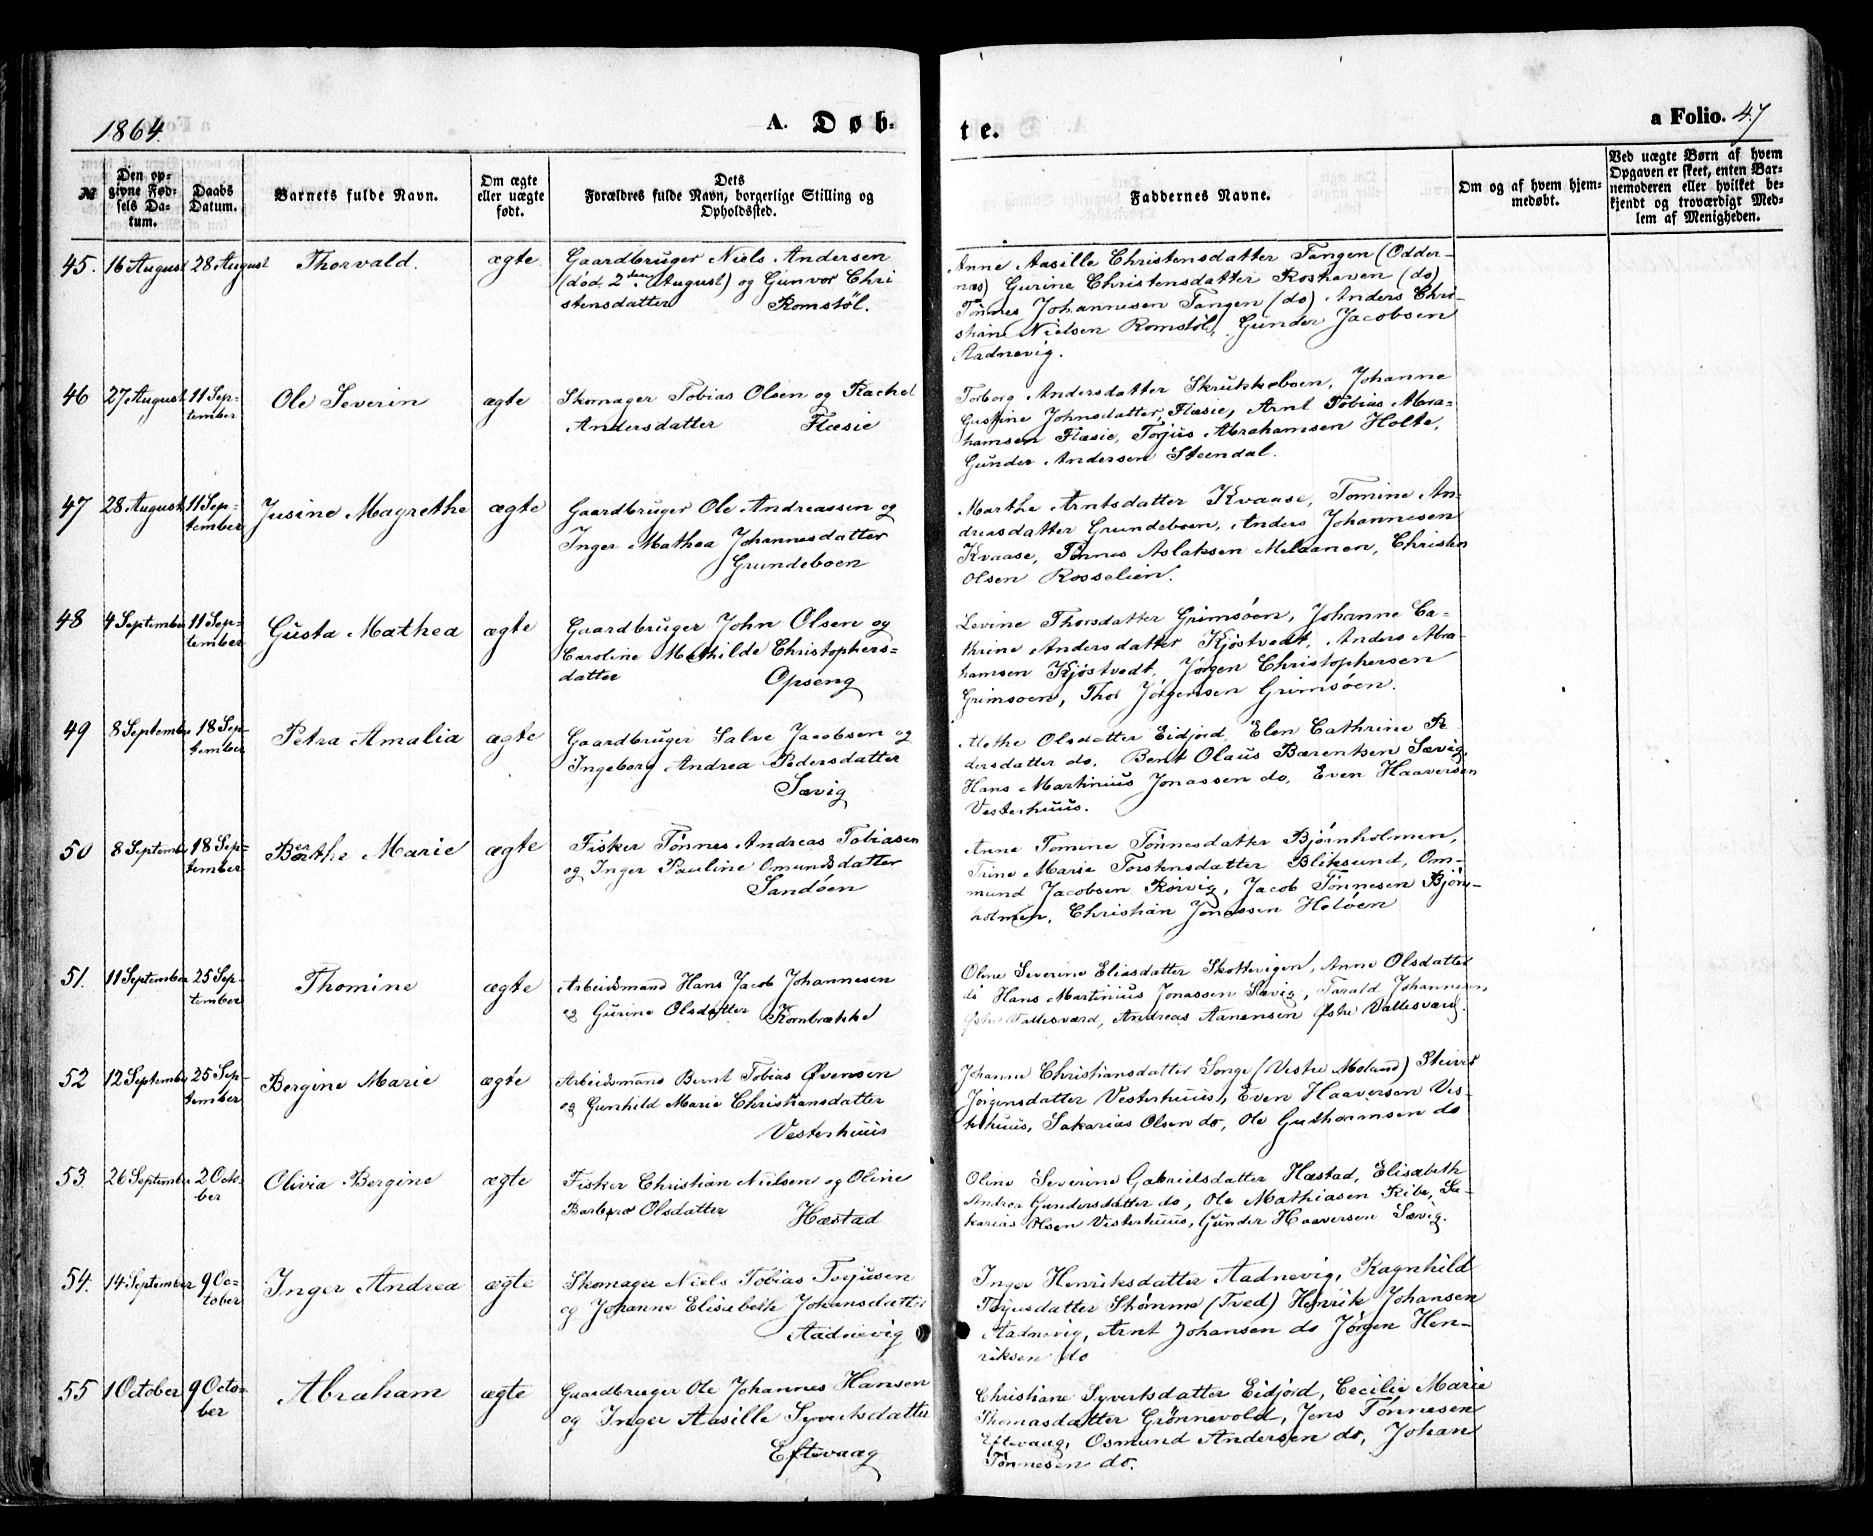 1864.
A. Døb-
te.
a Folio. 47
№
Den op-
givne Fød-
sels Da-
tum.
Daabs
Datum.
Barnets fulde Navn.
Om ægte
eller uægte
født.
Dets
Forældres fulde Navn, borgerlige Stilling og
Opholdssted.
Faddernes Navne.
Om og af hvem hjem-
medøbt.
Ved uægte Børn af hvem
Opgaven er skeet, enten Bar-
nemoderen eller hvilket be-
kjendt og troværdigt Med-
lem af Menigheden.
45. 16 August 28 August Thorvald. ægte
Gaardbruger Niels Andersen
(død 2den August) og Gunvor Chri
stensdatter Romstøl.
Anne Aasille Christensdatter Tangen (Odder-
næs) Gurine Christensdatter Roshaven (do)
Tønnes Johannesen Tangen (do) Anders Chri-
stian Nielsen Romstøl, Gunder Jacobsen
Aadnevig.
46 27 August 11 Sep-
tember
Ole Severin ægte
Skomager Tobias Olsen og Rachel
Andersdatter Flæsie
Torborg Andersdatter Skrukkeboen, Johanne
Gustine Johnsdatter, Flæsie, Arnt Tobias Abra-
hamsen Flæsie, Torjus Abrahamsen Holte,
Gunder Andersen Steendal.
47 28 August 11 Sep-
tember
Jusine Magrethe ægte
Gaardbruger Ole Andreassen og
Inger Mathea Johannesdatter
Grundeboen
Marthe Arntsdatter Kvaase, Tomine An-
dreasdatter Grundeboen, Anders Johannesen
Kvaase, Tønnes Aslaksen Melaanen, Christen
Olsen Rosselien.
48 4 September 11 Sep-
tember
Gusta Mathea ægte
Gaardbruger John Olsen og
Caroline Mathilde Christophers-
datter Opseng
Levine Thorsdatter Grimsøen, Johanne Ca-
thrine Andersdatter Kjøstvedt, Anders Abra-
hamsen Kjøstvedt, Jørgen Christophersen
Grimsøen, Thor Jørgensen Grimsøen.
49 8 September 18 Sep-
tember
Petra Amalia ægte
Gaardbruger Salve Jacobsen og
Ingeborg Andrea Pedersdatter
Sævig
Alethe Olsdatter Eidjord, Elen Cathrine Pe-
dersdatter do. Bent Olaus Bærentsen Sævig,
Hans Martinius Jonassen do, Even Haaversen
Vesterhuus.
50 8 September 18 Sep-
tember
Berthe Marie ægte
Fisker Tønnes Andreas Tobiasen
og Inger Pauline Omundsdatter
Sandøen
Anne Tomine Tønnesdatter Bjørnholmen,
Trine Marie Torstensdatter Bliksund, Om-
mund Jacobsen Rørvig, Jacob Tønnesen Bjørn-
holmen, Christian Jonassen Heløen
51. 11 September 25 Sep-
tember
Thomine ægte
Arbeidsmand Hans Jacob Johannesen
og Gurine Olsdatter Kornbrække
Oline Severine Eliasdatter Skottevigen, Anne Olsdatter
do Hans Martinius Jonassen Sævig, Tarald Johannesen
Østre Vallesværd, Andreas Aanensen Østre Vallesværd.
52 12 September 25 Sep-
tember
Bergine Marie ægte
Arbeidsmand Bernt Tobias Øvensen
og Gunhild Marie Christiansdatter
Vesterhuus
Johanne Christiansdatter Songe (Vestre Moland)
Jørgensdatter Vesterhuus, Even Haaversen Ves-
terhuus, Sakarias Olsen do, Ole Guthormsen do
53 26 September 2 Octo-
ber
Olivia Bergine ægte
Fisker Christian Nielsen og Oline
Barbara Olsdatter Hæstad
Oline Severine Gabrielsdatter Hæstad, Elisabeth
Andrea Gundersdatter do, Ole Mathiasen Ribe, Sa-
karias Olsen Vesterhuus, Gunder Haaversen Sævig.
54. 14 September 9 Oc-
tober
Inger Andrea ægte
Skomager Niels Tobias Torjusen
og Johanne Elisabeth Johansdatter
Aadnevig
Inger Henriksdatter Aadnevig, Ragnhild
Torjusdatter Stømme (Tved) Henrik Johansen
Aadnevig, Arnt Johansen do Jørgen Hen-
riksen do
55 1 October 9 Octo-
ber
Abraham ægte
Gaardbruger Ole Johannes Hansen
og Inger Aasille Syvertsdatter
Eftevaag
Christiane Syvertsdatter Eidjord, Cecilie Marie
Thomasdatter Grønnevold, Jens Tønnesen
Eftevaag, Osmund Andersen do, Johan
Tønnesen do.